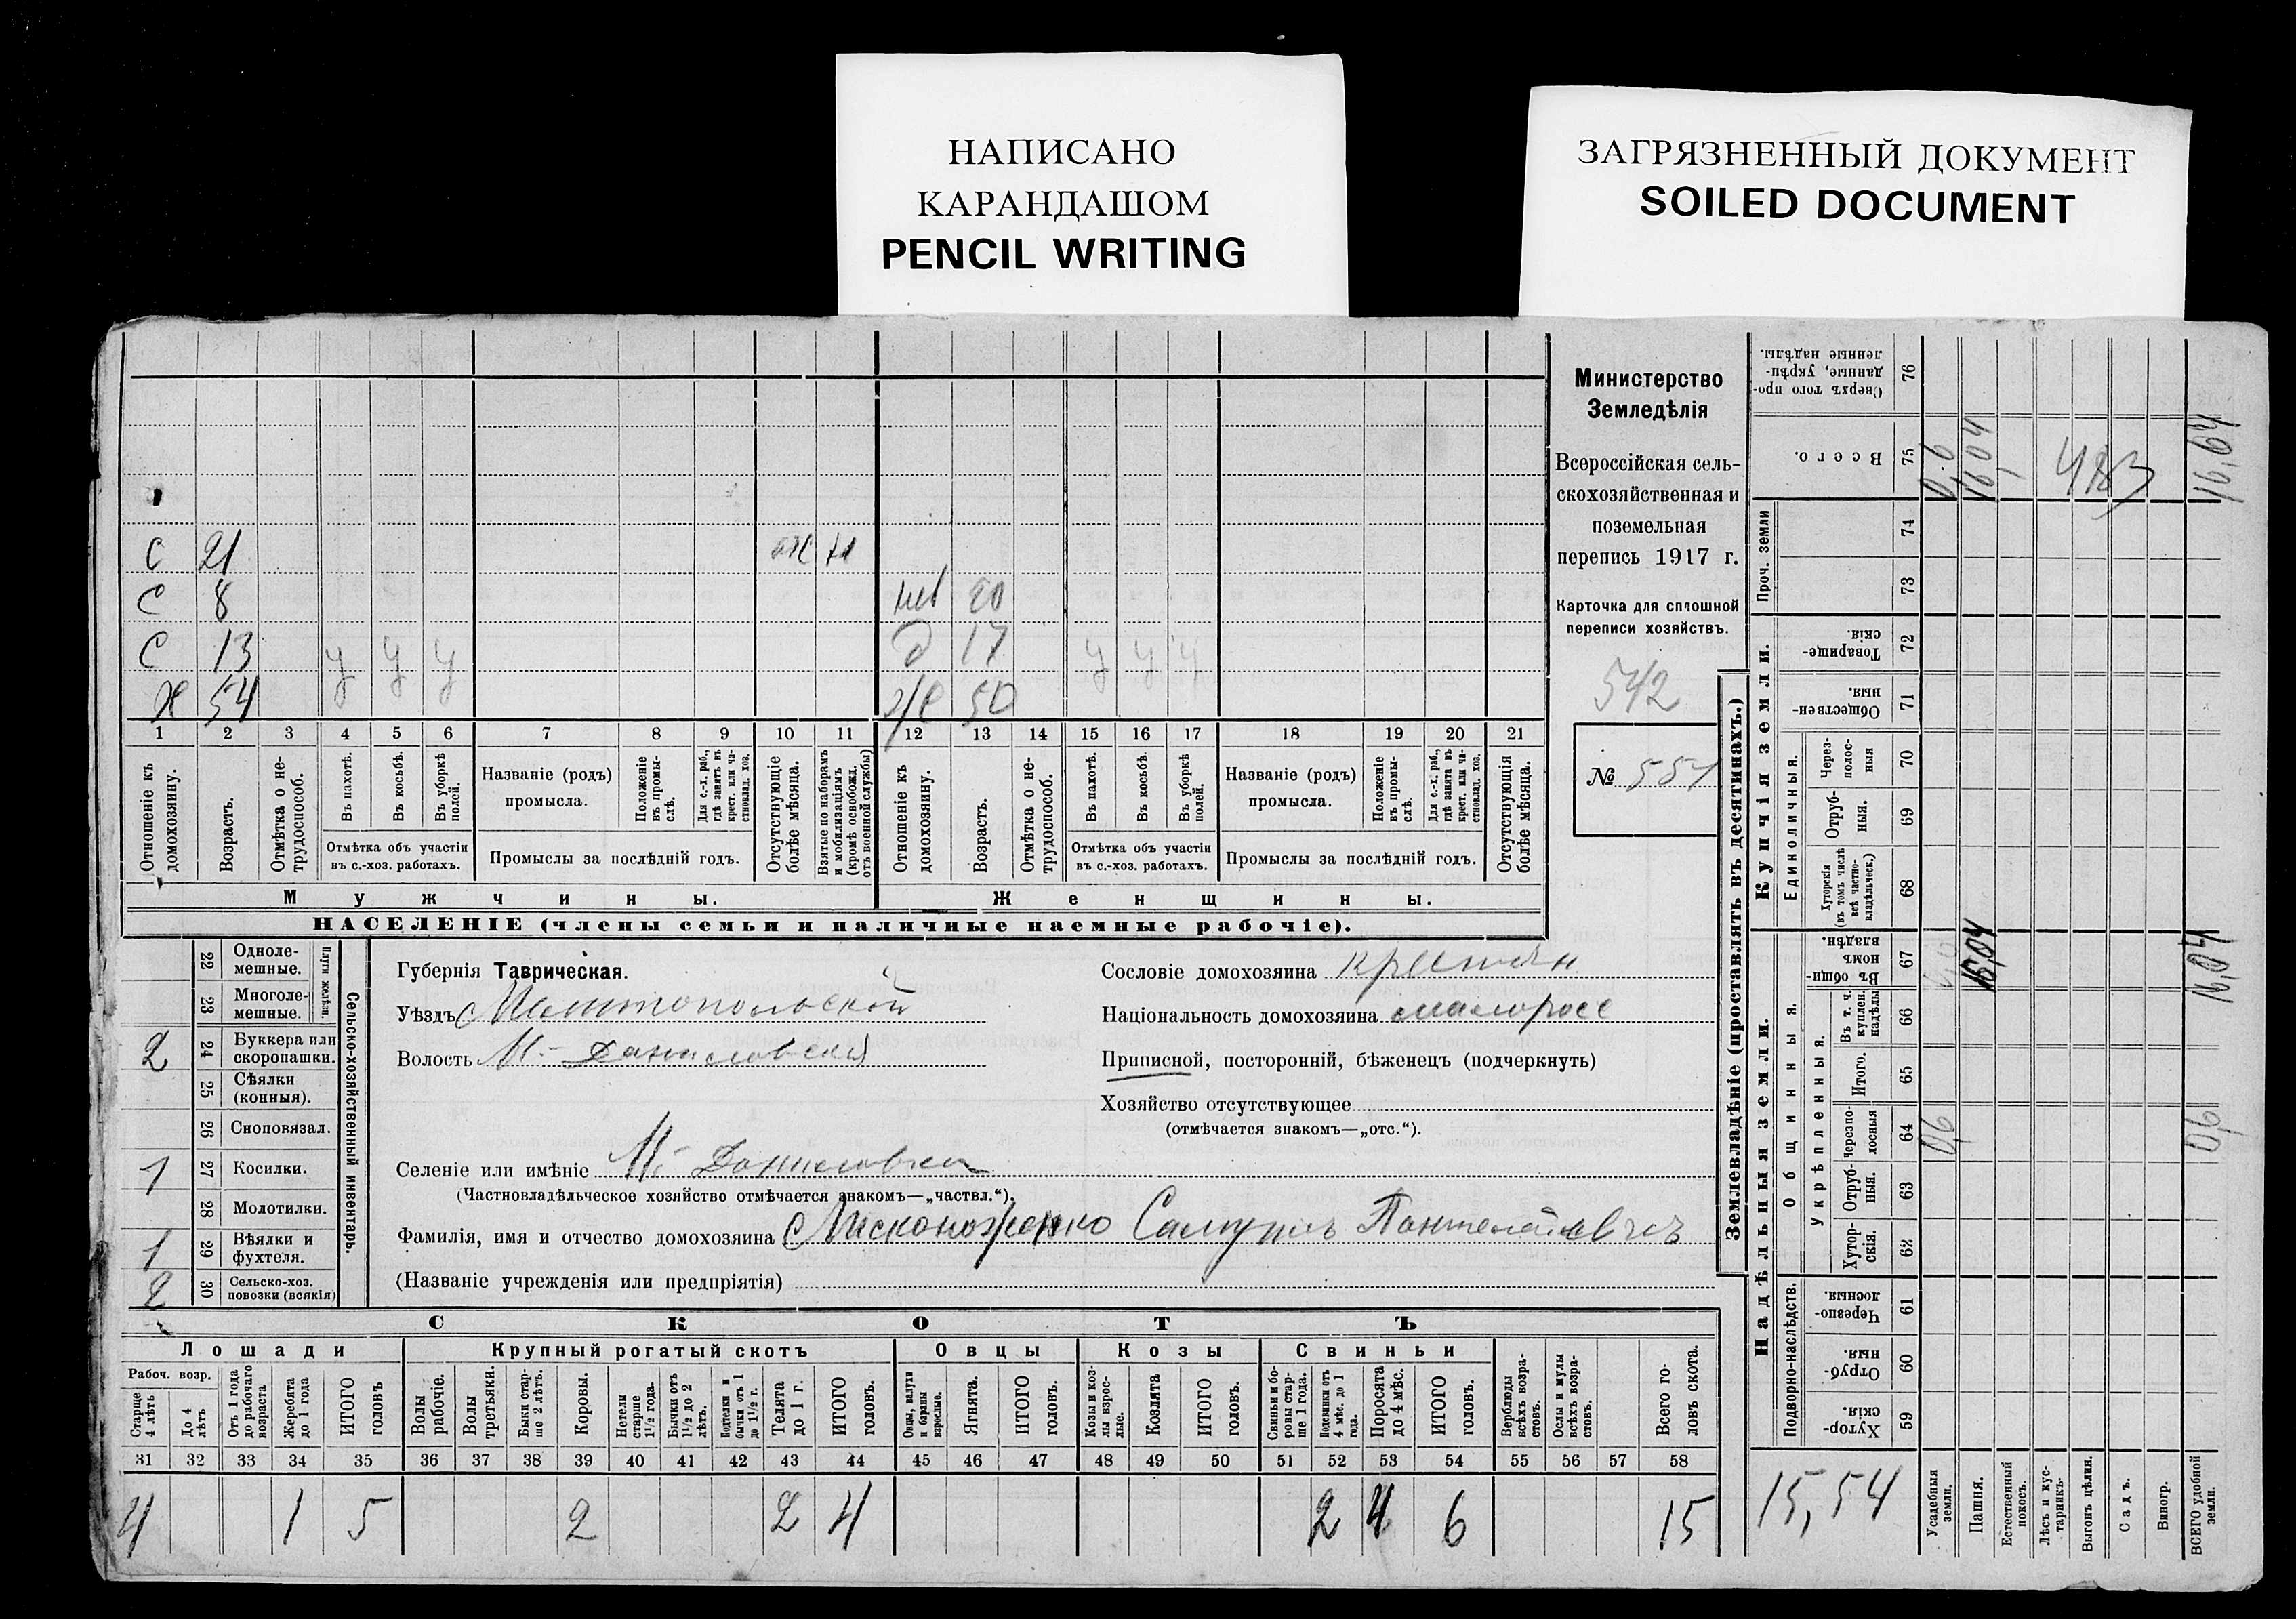 НАПИСАНО
КАРАНДАШОМ
PENCIL WRITING
ЗАГРЯЗНЕННЫЙ ДОКУМЕНТ
SOILED DOCUMENT
С 21
С 8 20
С 13 у у у д 17 у у у
Х 54 ж 50
1 2 3 4 5 6 7 8 9 10 11 12 13 14 15 16 17 18 19 20 21
Отношеніе къ домохозяину.
Возрастъ.
Отмѣтка о не-трудоспособ.
Въ пахотѣ.
Въ косьбѣ.
Въ уборкѣ полей.
Отмѣтка объ участіи
въ с.-хоз. работахъ.
Названіе (родъ)
промысла.
Положеніе въ промы-слѣ.
Для с.-х. раб., гдѣ занятъ въ крест. или ча-стновлад. хоз.
Промыслы за послѣдній годъ.
Отсутствующіе болѣе мѣсяца.
Взятые по наборамъ и мобилизаціямъ (кромѣ освобожд. отъ военной службы)
Отношеніе къ домохозяину.
Возрастъ.
Отмѣтка о не-трудоспособ.
Въ пахотѣ.
Въ косьбѣ.
Въ уборкѣ полей.
Отмѣтка объ участіи
въ с.-хоз. работахъ.
Названіе (родъ)
промысла.
Положеніе въ промы-слѣ.
Для с.-х. раб., гдѣ занята въ крест. или ча-стновлад. хоз.
Промыслы за послѣдній годъ.
Отсутствующія болѣе мѣсяца.
Мужчины.
Женщины.
НАСЕЛЕНІЕ (члены семьи и наличные наемные рабочіе).
Министерство
Земледѣлія
Всероссійская сель-
скохозяйственная и
поземельная
перепись 1917 г.
Карточка для сплошной
переписи хозяйствъ.
542
№ 551
Сельско-хозяйственный инвентарь.
Плуги желѣзн.
22 Одноле-мешные.
23 Многоле-мешные.
2 24 Буккера или скоропашки.
25 Сѣялки (конныя).
26 Сноповязал.
1 27 Косилки.
28 Молотилки.
1 29 Вѣялки и фухтеля.
2 30 Сельско-хоз. повозки (всякія)
Губернія Таврическая.
Уѣздъ Мелитопольскій
Волость М.-Даниловская
Селеніе или имѣніе М-Даниловка
(Частновладѣльческое хозяйство отмѣчается знакомъ—„частвл.“).
Фамилія, имя и отчество домохозяина Самуилъ
(Названіе учрежденія или предпріятія)
Сословіе домохозяина крестьян
Національность домохозяина малоросс
Приписной, посторонній, бѣженецъ (подчеркнуть)
Хозяйство отсутствующее
(отмѣчается знакомъ—„отс.“).
СКОТЪ
Лошади
Крупный рогатый скотъ
Овцы
Козы
Свиньи
Рабоч. возр.
Старше 4 лѣтъ
До 4 лѣтъ
Отъ 1 года до рабочаго возраста
Жеребята до 1 года
ИТОГО головъ
Волы рабочіе.
Волы третьяки.
Быки стар-ше 2 лѣтъ.
Коровы.
Нетели старше 1½ года.
Бычки отъ 1½ до 2 лѣтъ.
Подтелки и бычки отъ 1 до 1½ г.
Телята до 1 г.
ИТОГО головъ.
Овцы, валухи и бараны взрослые.
Ягнята.
ИТОГО головъ.
Козы и коз-лы взрос-лые.
Козлята
ИТОГО головъ.
Свиньи и бо-ровы стар-ше 1 года.
Подсвинки отъ 4 мѣс. до 1 года.
Поросята до 4 мѣс.
ИТОГО головъ.
Верблюды всѣхъ возра-стовъ.
Ослы и мулы всѣхъ возра-стовъ.
Всего го-ловъ скота.
31 32 33 34 35 36 37 38 39 40 41 42 43 44 45 46 47 48 49 50 51 52 53 54 55 56 57 58
4 1 5 2 2 4 2 4 6 15
Землевладѣніе (проставлять въ десятинахъ.)
Сверхъ того про-данные, укрѣп-ленные надѣлы. 76
Всего. 75 0.6 16,04 16,64
Проч. земли 74
73
Купчія земли.
Товарище-скія. 72
Обществен-ныя. 71
Единоличныя.
Через-полос-ныя 70
Отруб-ныя. 69
Хуторскія (въ томъ числѣ всѣ частно-владѣльческ.) 68
Надѣльныя земли.
Общинныя.
Въ общи-номъ владѣн. 67 16,04 16,04
Укрѣпленныя.
Въ т. ч. куплен. надѣлы 66
Итого. 65
Черезпо-лосныя 64 0,6 0,6
Отруб-ныя. 63
Хутор-скія. 62
Подворно-наслѣдств.
Черезпо-лосныя. 61
Отруб-ныя. 60
Хутор-скія. 59
15,54
Усадебныя земли.
Пашня.
Естественный покосъ.
Лѣсъ и кус-тарникъ.
Выгонъ цѣлин.
Садъ.
Виногр.
ВСЕГО удобной земли.